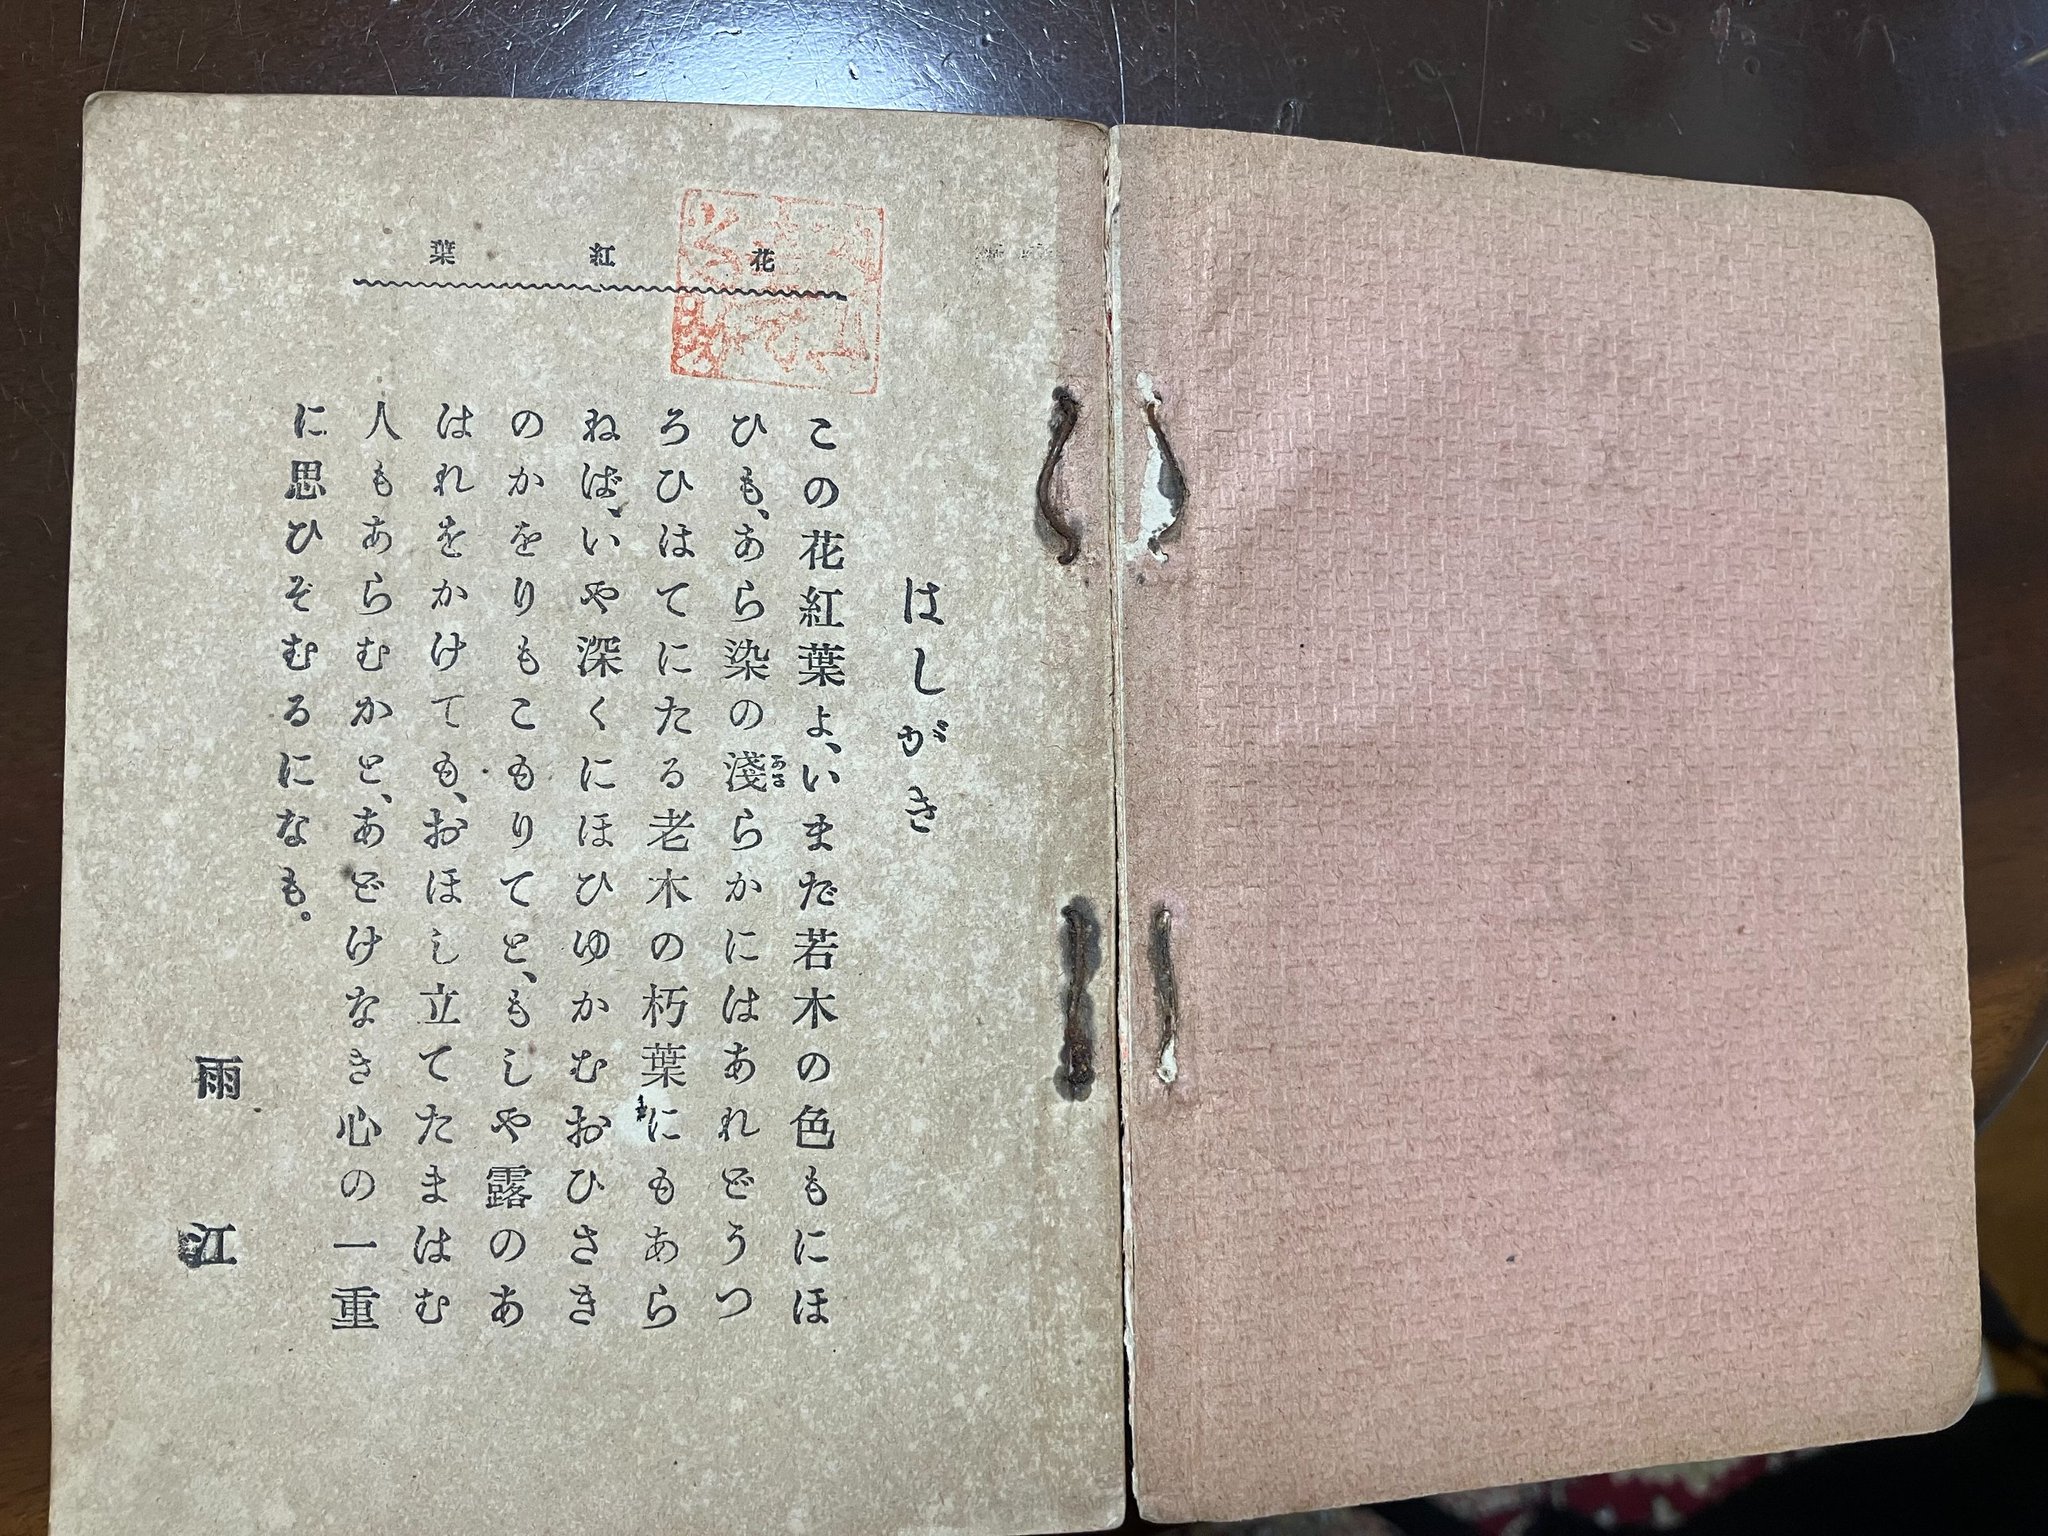 花紅葉
はしがき
この花紅葉よ、いまだ若木の色もにほ
ひも、あら染の淺らかにはあれどうつ
あさ
ろひはてにたる老木の朽葉にもあら
ねば、いや深くにほひゆかむおひさき
のかをりもこもりてと、もしや露のあ
はれをかけても、おほし立てたまはむ
人もあらむかと、あどけなき心の一重
に思ひそむるになも。
雨江